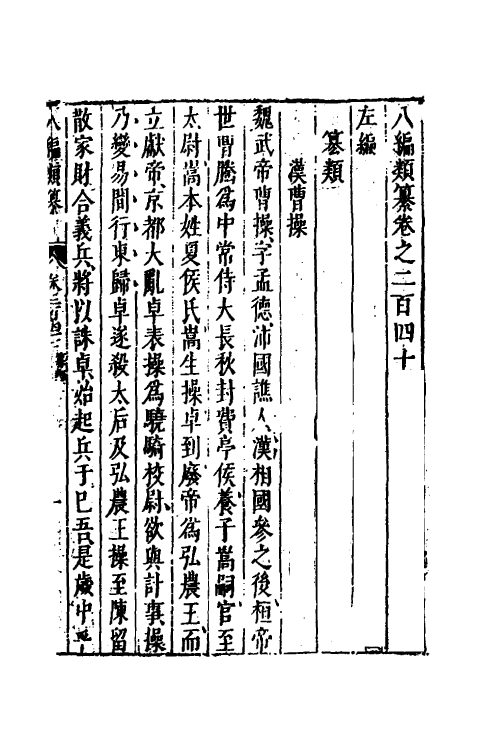 八編類纂卷之二百四十
左編
篡類
漢曹操
魏武帝曹操字孟德沛國譙人漢相國參之後桓帝
世曹騰為中常侍大長秋封費亭侯養子嵩嗣官至
太尉嵩本姓夏侯氏嵩生操卓到廢帝為弘農王而
立獻帝京都大亂卓表操為驍騎校尉欲與計事操
乃變易間行東歸卓遂殺太后及弘農王操至陳留
散家財合義兵將以誅卓始起兵于巳吾是歲中平
八編類纂 一